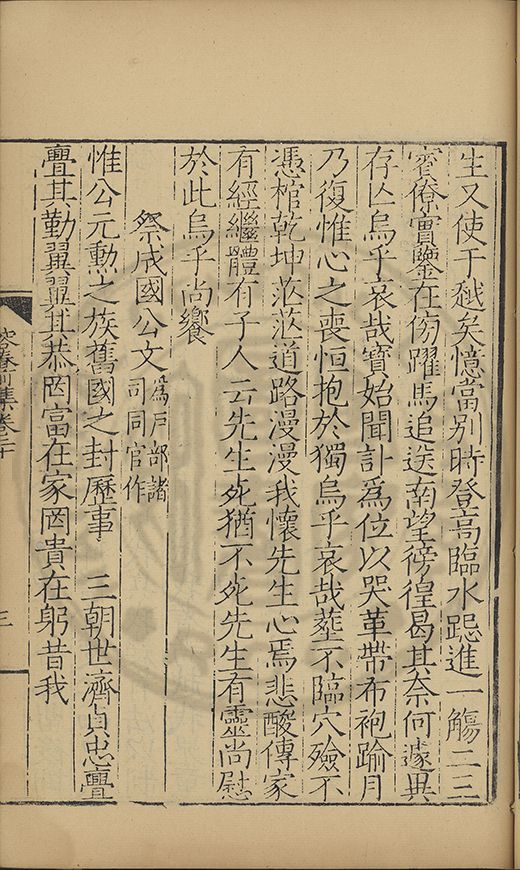 生又使于越矣憶當別時登高臨水跽進一觴二三
賓僚實鑒在傍躍馬追送南望徬徨曷其奈何遽異
存亾烏乎哀哉寶始聞訃爲位以哭革帶布袍踰月
乃復惟心之喪恒抱於獨烏乎哀哉塟不臨穴殮不
憑棺乾坤茫茫道路漫漫我懷先生心焉悲酸傳家
有經繼體有子人云先生死猶不死先生有靈尚慰
於此烏乎尚饗
祭成國公文爲戶部諸
司同官作
惟公元勲之族舊國之封歷事 三朝世濟貞忠亹
亹其勤翼翼其恭罔富在家罔貴在躬昔我
容春前集卷二十
三